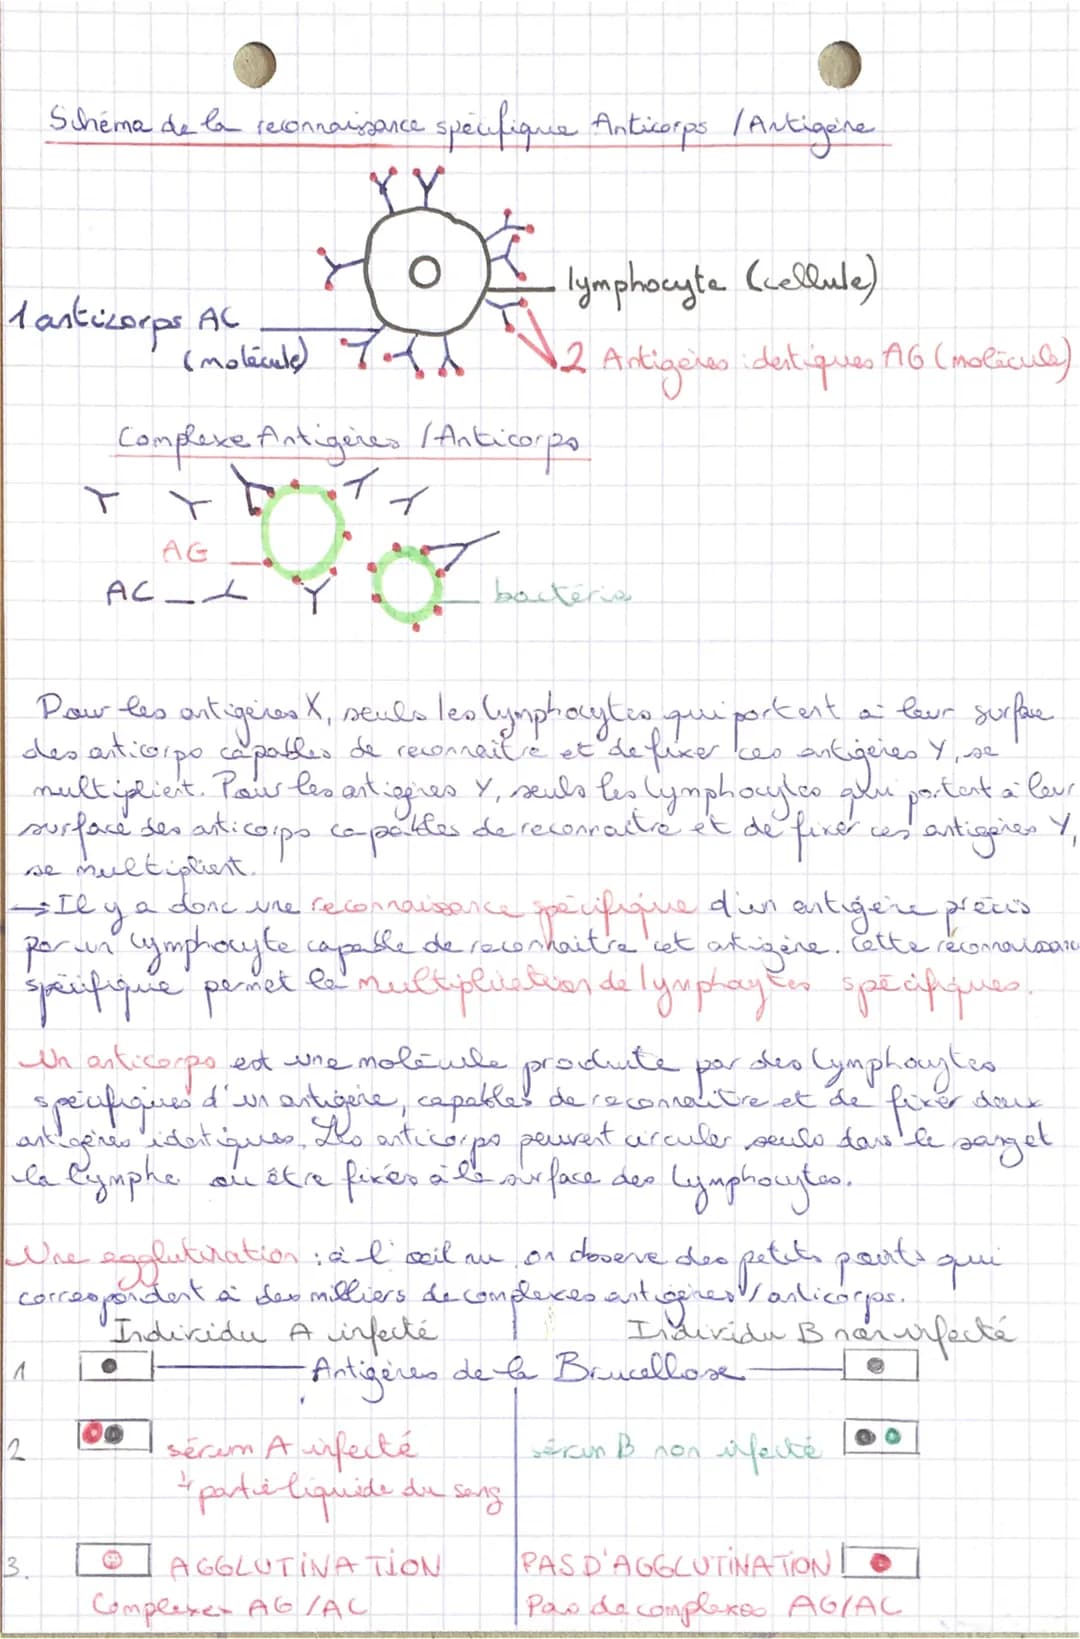 Schéma de la reconnaissance spécifique Anticorps / Antigène
lymphocyte (cellule)
1 anticorps AC
(molécule)
2 Antigènes identiques AG (molécule)
Complexe Antigènes / Anticorps
AG
AC
bactérie
Pour les antigènes X, seuls les lymphocytes qui portent à leur surface
des anticorps capables de reconnaître et de fixer ces antigènes Y, se
multiplient. Pour les antigènes Y, seuls les lymphocytes qui portent à leur
surface des anticorps capables de reconnaître et de fixer ces antigènes Y,
se multiplient.
→ Il y a donc une reconnaissance spécifique d'un antigène précis
par un lymphocyte capable de reconnaitre cet antigène. Cette reconnaissance
spécifique permet la multiplication de lymphocytes spécifiques.
Un anticorps est une molécule produite par des lymphocytes
spécifiques d'un antigène, capables de reconnaître et de fixer deux
antigènes identiques. Les anticorps peuvent circuler seuls dans le sang et
la lymphe ou être fixés à la surface des lymphocytes.
Une agglutination : à l'oeil nu on observe des petits points qui
correspondent à des milliers de complexes antigènes / anticorps.
Individu A infecté Individu B non infecté
1 Antigènes de la Brucellose
2 sérum A infecté sérum B non infecté
↳ partie liquide du sang
3. AGGLUTINATION PAS D'AGGLUTINATION
Complexes AG / AC Pas de complexes AG/AC